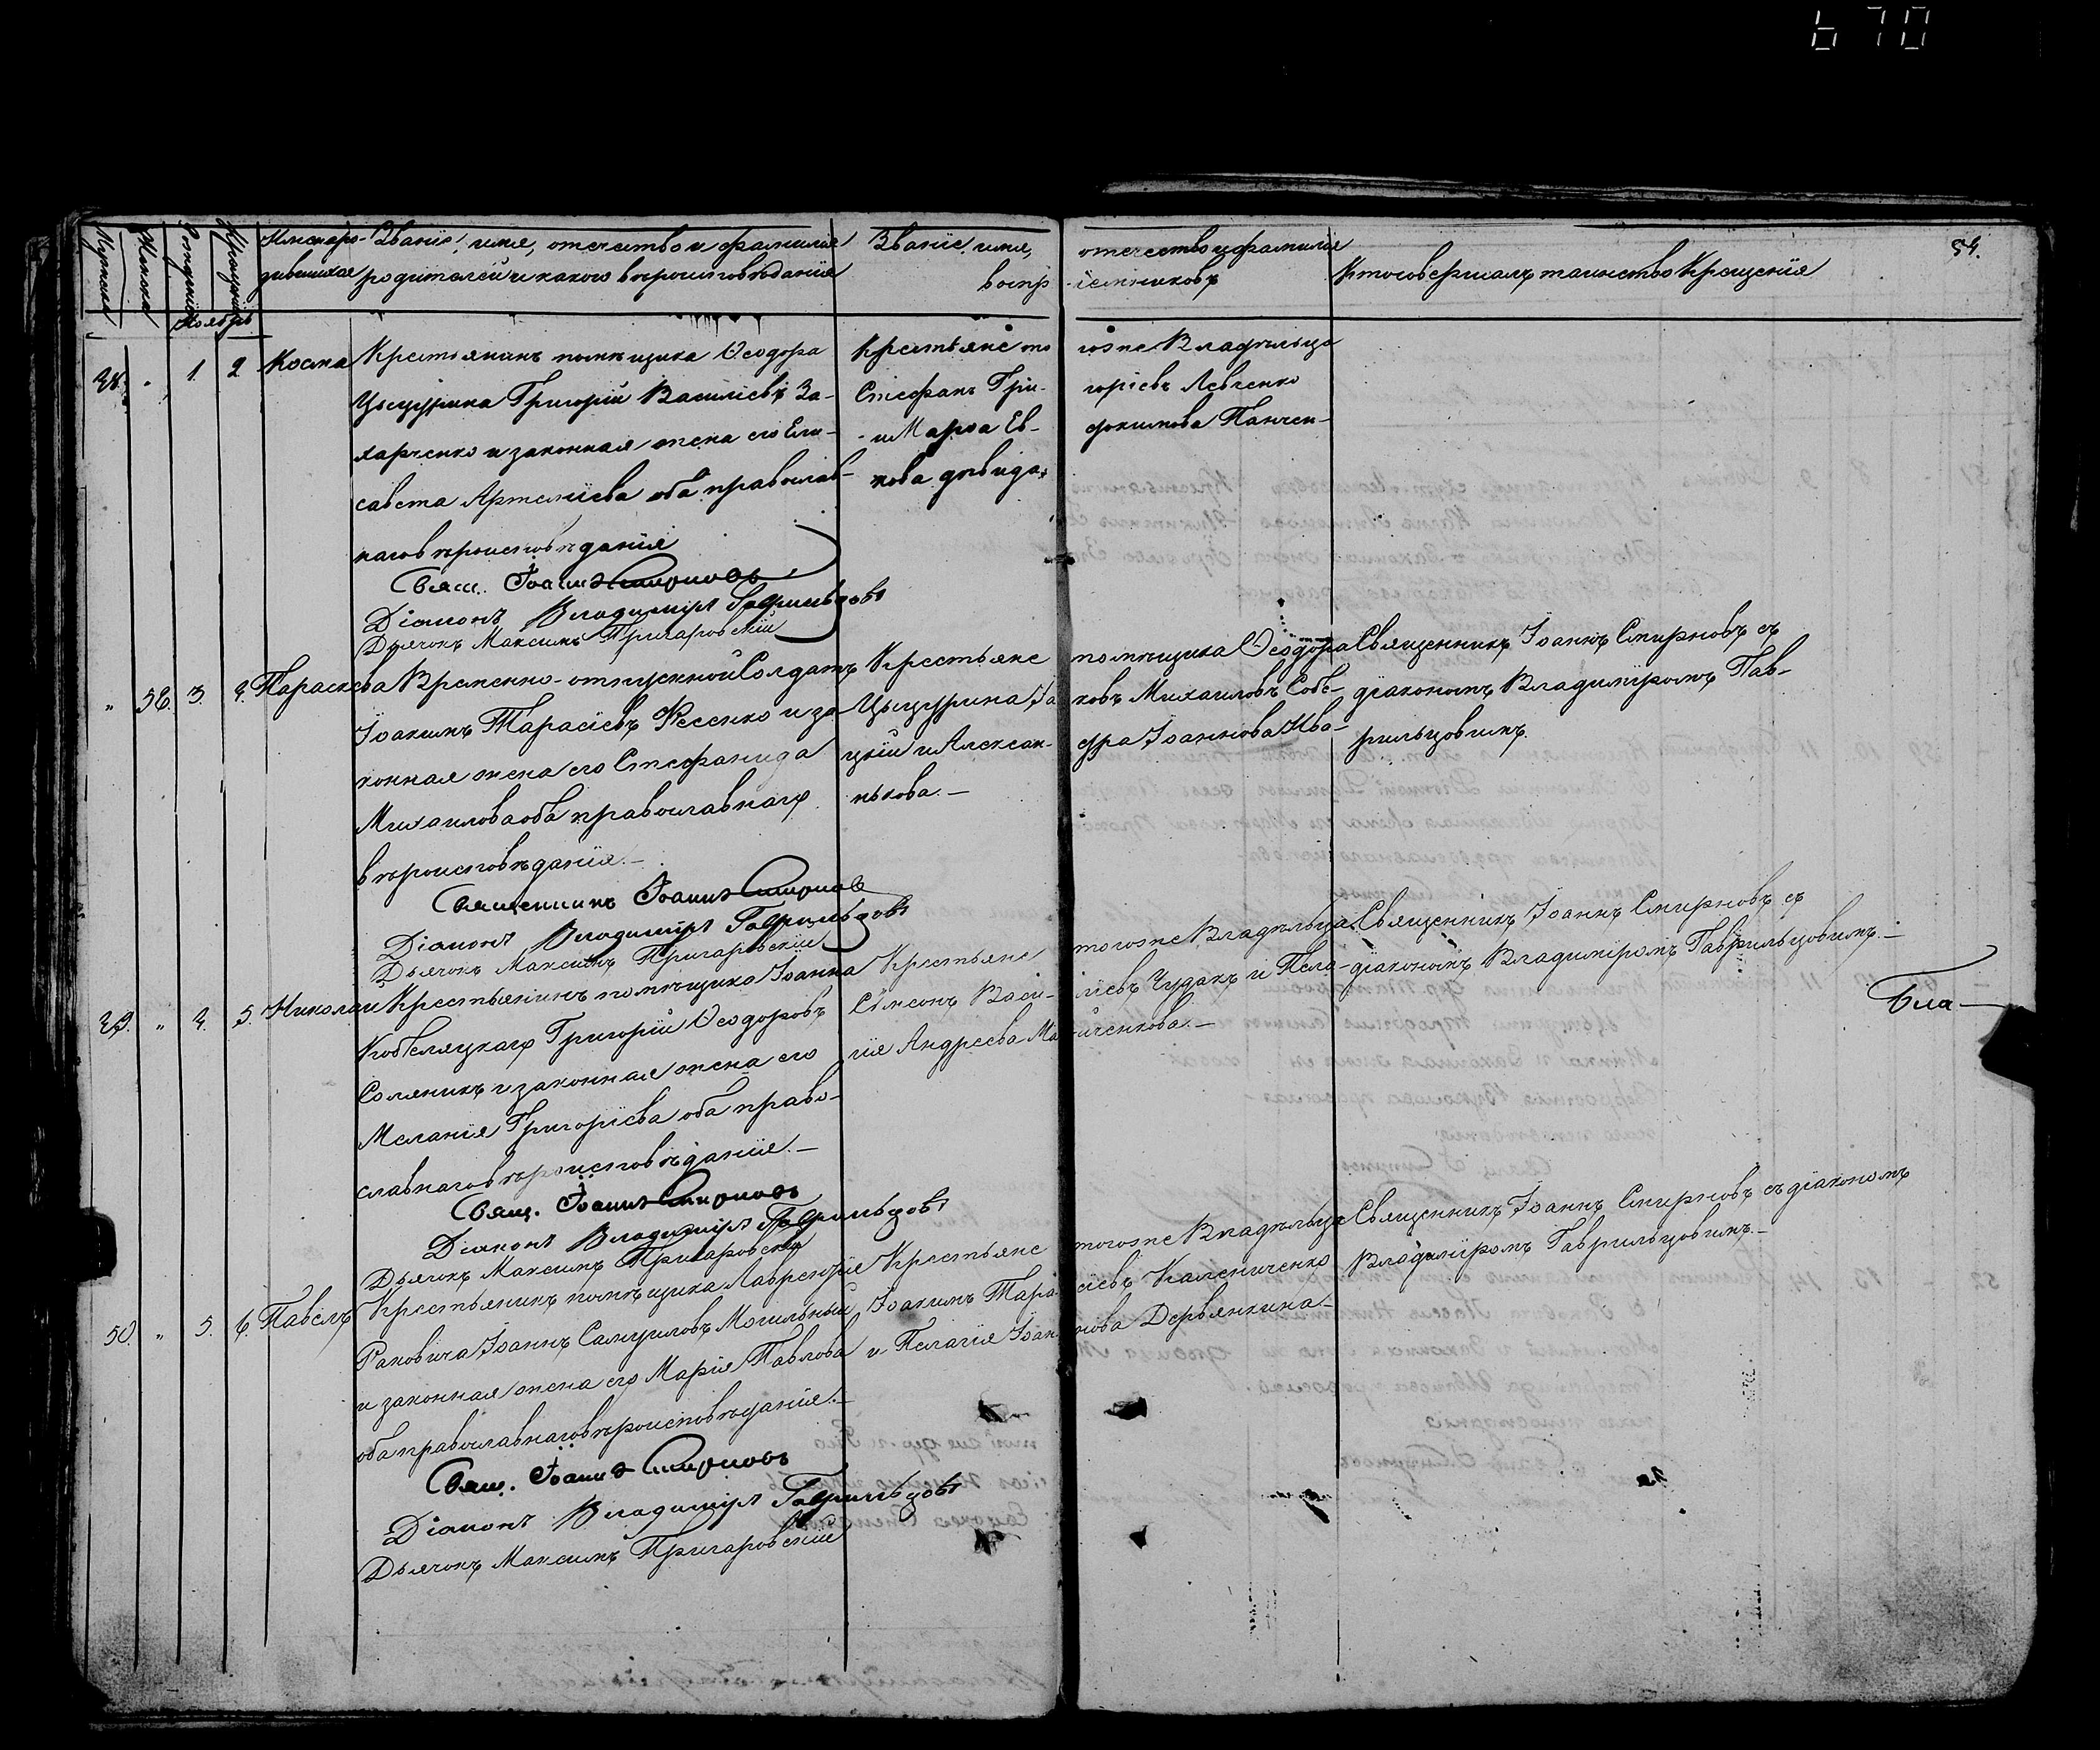 670
54.
Мужска
Женска
Рожденія
Крещенія
Ноябрь
Имена ро-
дившихся
Званіе, имя, отечество и фамилія
родителей и какого вѣроисповѣданія
Званіе, имя, отечество и фамилія
воспріемниковъ
Кто совершалъ таинство Крещенія
48. „ 1. 2 Косма Крестьянинъ помѣщика Ѳеодора
Григорій Василіевъ За-
харченко и законная жена его Ели-
савета Артеміева оба православ-
наго вѣроисповѣданія
Крестьяне то гоже Владѣльца
Стефанъ Гри- горіевъ Левченко
и Марѳа Ев- фокимова Панчен-
кова дѣвица.
Свящ. Іоаннъ Смирновъ
Діаконъ Владиміръ Гаврильцовъ
Дьячокъ Максимъ Пригаровскій
„ 56. 3. 4. Параскева Временно-отпускной Солдатъ
Іоакимъ Тарасіевъ Фесенко и за-
конная жена его Стефанида
Михаилова оба православнаго
вѣроисповѣданія.—
Крестьяне помѣщика Ѳеодора
Іа ковъ Михаиловъ Собе-
цкій и Алексан- дра Іоаннова Ива-
нькова.—
Священникъ Іоаннъ Смирновъ съ
діакономъ Владиміромъ Гав-
рильцовимъ.
Священникъ Іоаннъ Смирновъ
Діаконъ Владиміръ Гаврильцовъ
Дьячокъ Максимъ Пригаровскій
49. „ 4. 5. Николай Крестьянинъ помѣщика Іоанна
Кобеляцкаго Григорій Ѳеодоровъ
Соляникъ и законная жена его
Меланія Григоріева оба право-
славнаго вѣроисповѣданія.—
Крестьяне тогоже Владѣльца
Сѵмеонъ Васи- ліевъ Чудакъ и Пела-
гія Андреева
Священникъ Іоаннъ Смирновъ съ
діакономъ Владиміромъ Гаврильцовимъ.—
Бла-
Свящ. Іоаннъ Смирновъ
Діаконъ Владиміръ Гаврильцовъ
Дьячокъ Максимъ Пригаровскій
50. „ 5. 6. Павелъ Крестьянинъ помѣщика Лаврентія
Раковича Іоаннъ Самуиловъ Могильный
и законная жена его Марія Павлова
оба православнаго вѣроисповѣданія.—
Крестьяне тогоже Владѣльца
Іоакимъ Тара- сіевъ Калениченко
и Пелагія Іоан- нова Деревянкина.—
Священникъ Іоаннъ Смирновъ съ діакономъ
Владиміромъ Гаврильцовимъ.—
Свящ. Іоаннъ Смирновъ
Діаконъ Владиміръ Гаврильцовъ
Дьячокъ Максимъ Пригаровскій